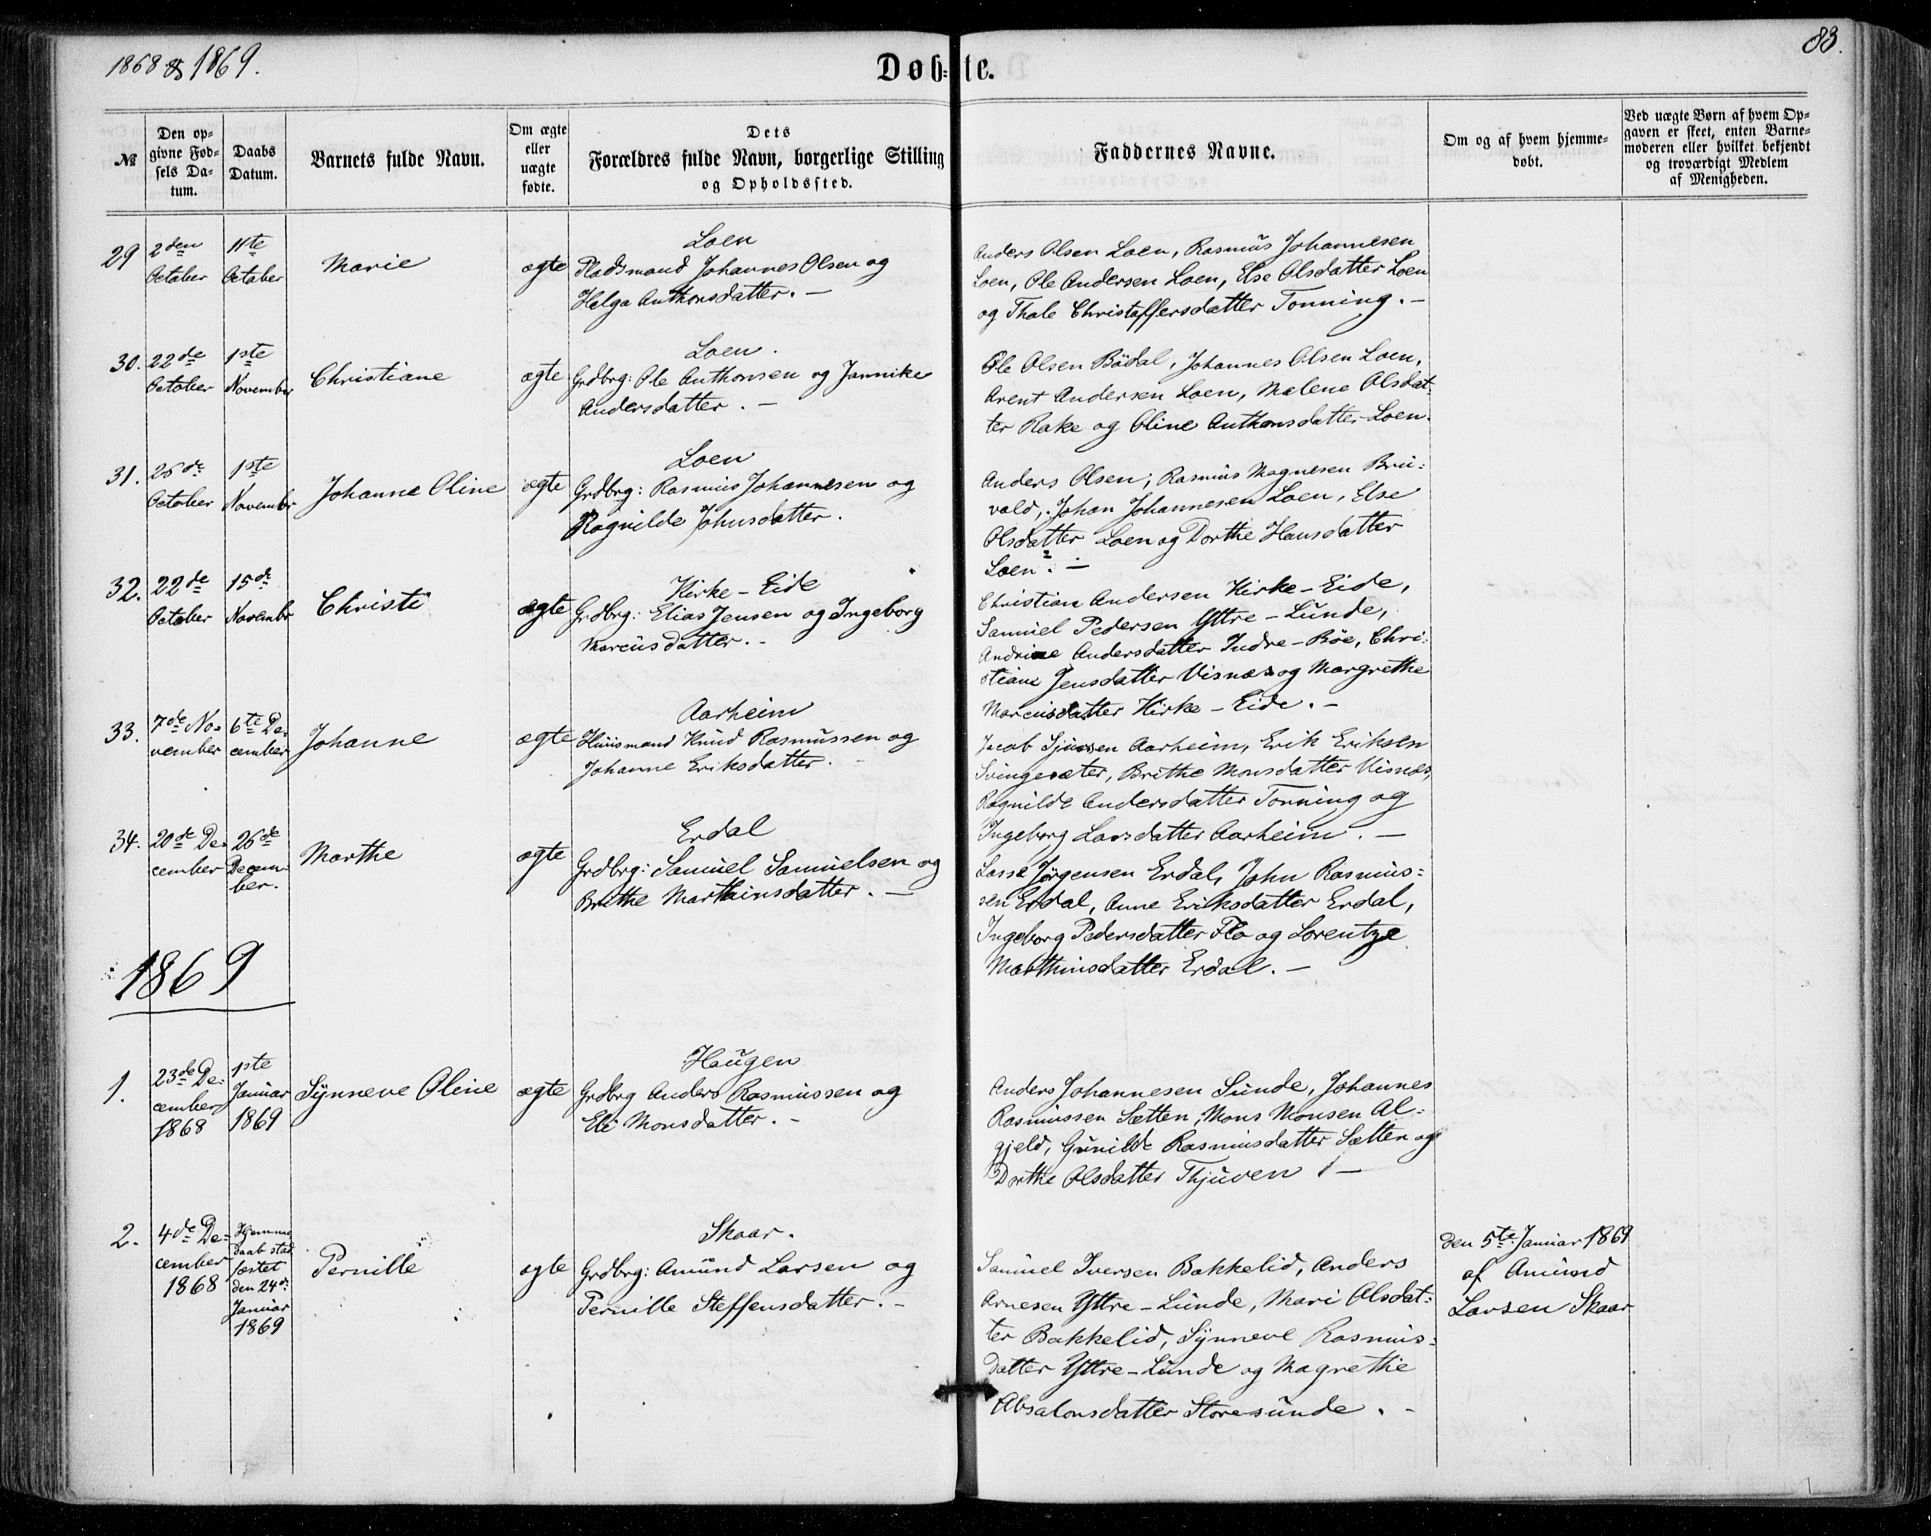 1868 & 1869.
Døb-te.
83.
No
Den op-
givne Fød-
sels Da-
tum.
Daabs
Datum.
Barnets fulde Navn.
Om ægte
eller
uægte
fødte.
Dets
Forældres fulde Navn, borgerlige Stilling
og Opholdssted.
Faddernes Navne.
Om og af hvem hjemme-
døbt.
Ved uægte Børn af hvem Op-
gaven er skeet, enten Barne-
moderen eller hvilket bekjendt
og troværdigt Medlem
af Menigheden.
29
2den
October
11te
October
Marie
ægte
Loen
Pladsmand Johannes Olsen og
Helga Anthonsdatter. —
Anders Olsen Loen, Rasmus Johannesen
Loen, Ole Andersen Loen, Else Olsdatter Loen
og Thale Christoffersdatter Tonning. —
30.
22de
October
1ste
November
Christiane
ægte
Loen.
Grdbrg: Ole Anthonsen og Jannike
Andersdatter. —
Ole Olsen Bödal, Johannes Olsen Loen,
Arent Andersen Loen, Malene Olsdat-
ter Rake og Oline Anthonsdatter Loen.
31.
26de
October
1ste
Novembr
Johanne Oline
ægte
Loen
Grdbrg: Rasmus Johannesen og
Ragnilde Johnsdatter.
Anders Olsen, Rasmus Magnesen Bru-
vold, Johan Johannesen Loen, Else
Olsdatter Loen og Dorthe Hansdatter
Loen. —
32.
22de
October
15de
Novembr
Christi
ægte
Kirke-Eide
Grdbrg: Elias Jensen og Ingeborg
Marcusdatter. -
Christian Andersen Kirke-Eide,
Samuel Pedersen Yttre-Lunde,
Andrine Andersdatter Indre-Böe, Chri-
stiane Jensdatter Visnæs og Margrethe
Marcusdatter Kirke-Eide. -
33.
7de No-
vember
6te De-
cember
Johanne
ægte
Aarheim
Huusmand Knud Rasmussen og
Johanne Eriksdatter. -
Jacob Sjursen Aarheim, Erik Eriksen
Svingesæter, Brithe Monsdatter Visnæs,
Ragnilde Andersdatter Tonning og
Ingeborg Larsdatter Aarheim. —
34.
20de De-
cember
26de
Decem-
ber.
Marthe
ægte
Erdal
Grdbrg: Samuel Samuelsen og
Brithe Marthinsdatter. —
Lasse Jørgensen Erdal, John Rasmus-
sen Erdal, Anne Eriksdatter Erdal,
Ingeborg Pedersdatter Flo og Lorentze
Marthinsdatter Erdal. —
1869
1.
23de De-
cember
1868
1ste
Januar
1869
Synneve Oline
ægte
Haugen
Grdbrg Anders Rasmussen og
Eli Monsdatter. -
Anders Johannesen Sunde, Johannes
Rasmussen Sætten, Mons Monsen Al-
gjeld, Gunilde Rasmusdatter Sætten og
Dorthe Olsdatter Thjuven. —
2.
4de De-
cember
1868
Hjemme
daab stad
fæstet
den 24de
Januar
1869
Pernille
ægte
Skaar.
Grdbrg: Amund Larsen og
Pernille Steffensdatter. -
Samuel Iversen Bakkelid, Anders
Arnesen Yttre-Lunde, Mari Olsdat-
ter Bakkelid, Synneve Rasmus-
datter Yttre-Lunde og Magrethe
Absalonsdatter Storesunde. -
den 5te Januar 1869
af Amund
Larsen Skaar